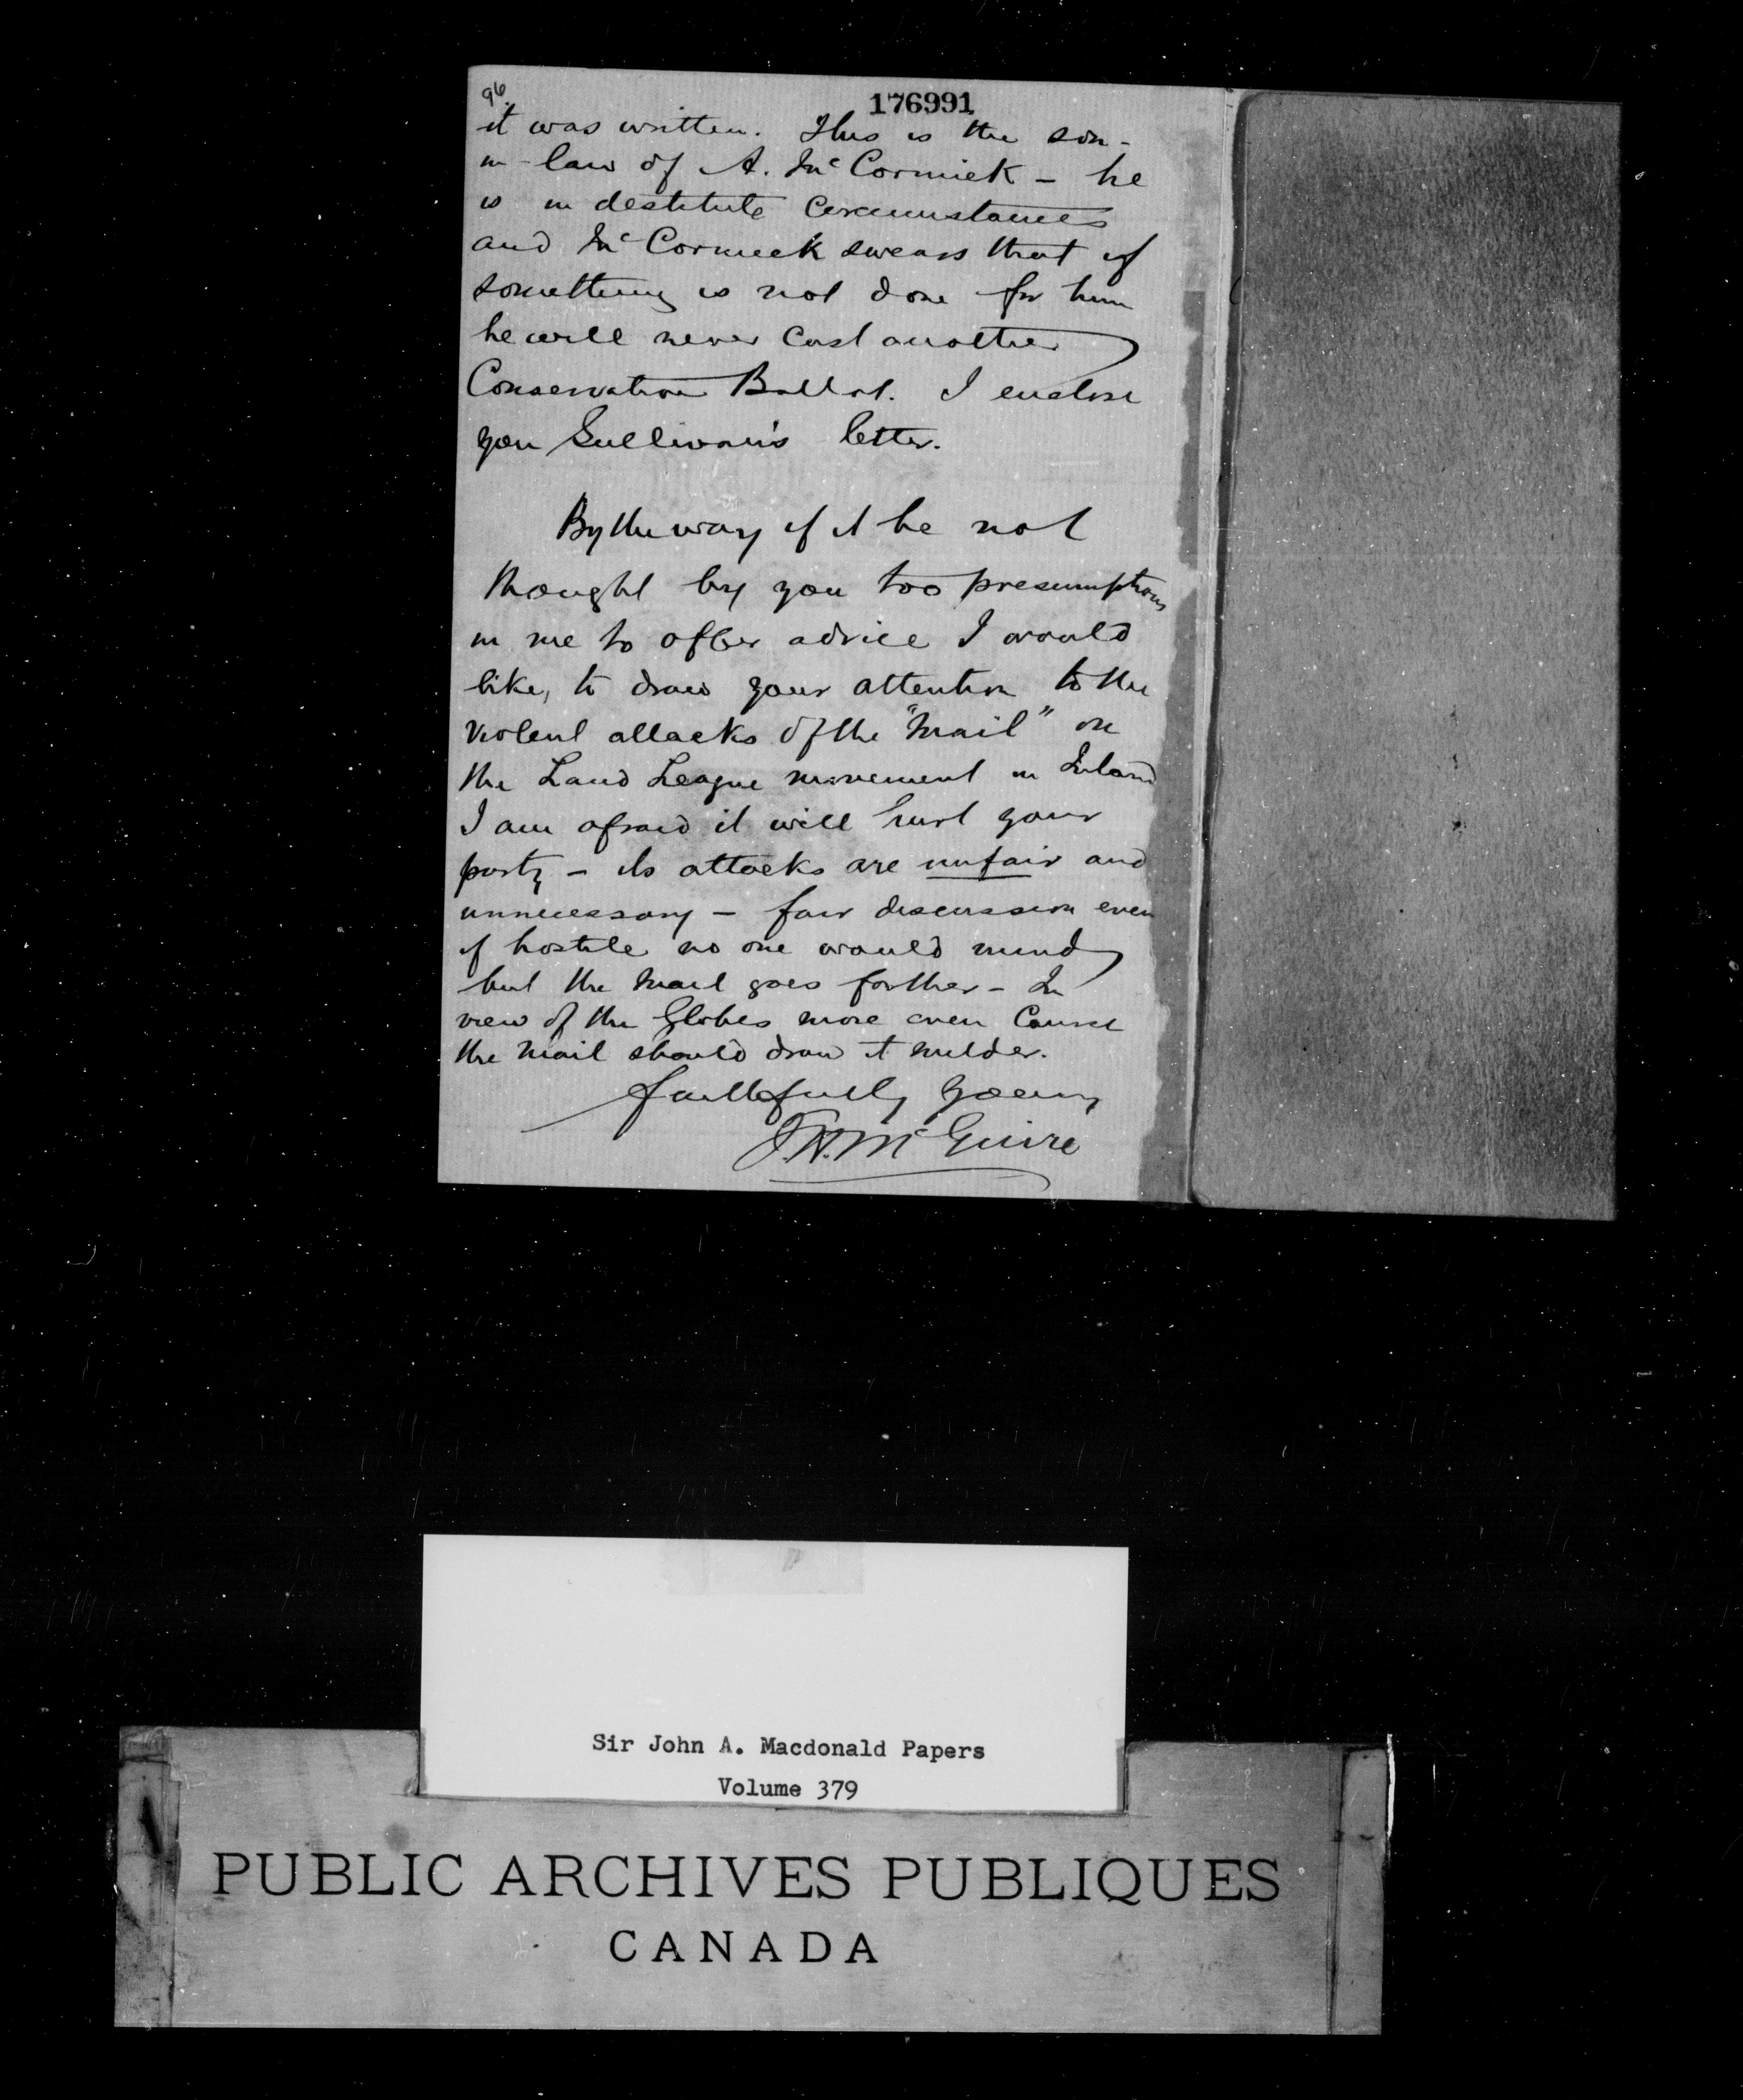 96.
176991
it was written. This is the son-
in-law of A. McCormick - he
is in destitute circumstances
and McCormick swears that if
something is not done for him
he will never cast another
Conservative Ballot. I enclose
you Sullivan's letter.
By the way if it be not
thought by you too presumptuous
in me to offer advice I would
like, to draw your attention to the
violent attacks of the "Mail" on
the Land League movement in Ireland
I am afraid it will hurt your
party - its attacks are unfair and
unnecessary - fair discussion even
if hostile no one would mind
but the Mail goes farther - In
view of the Globes more even course
the Mail should draw it milder.
Faithfully yours
McGuire
Sir John A. Macdonald Papers
Volume 379
PUBLIC ARCHIVES PUBLIQUES
CANADA